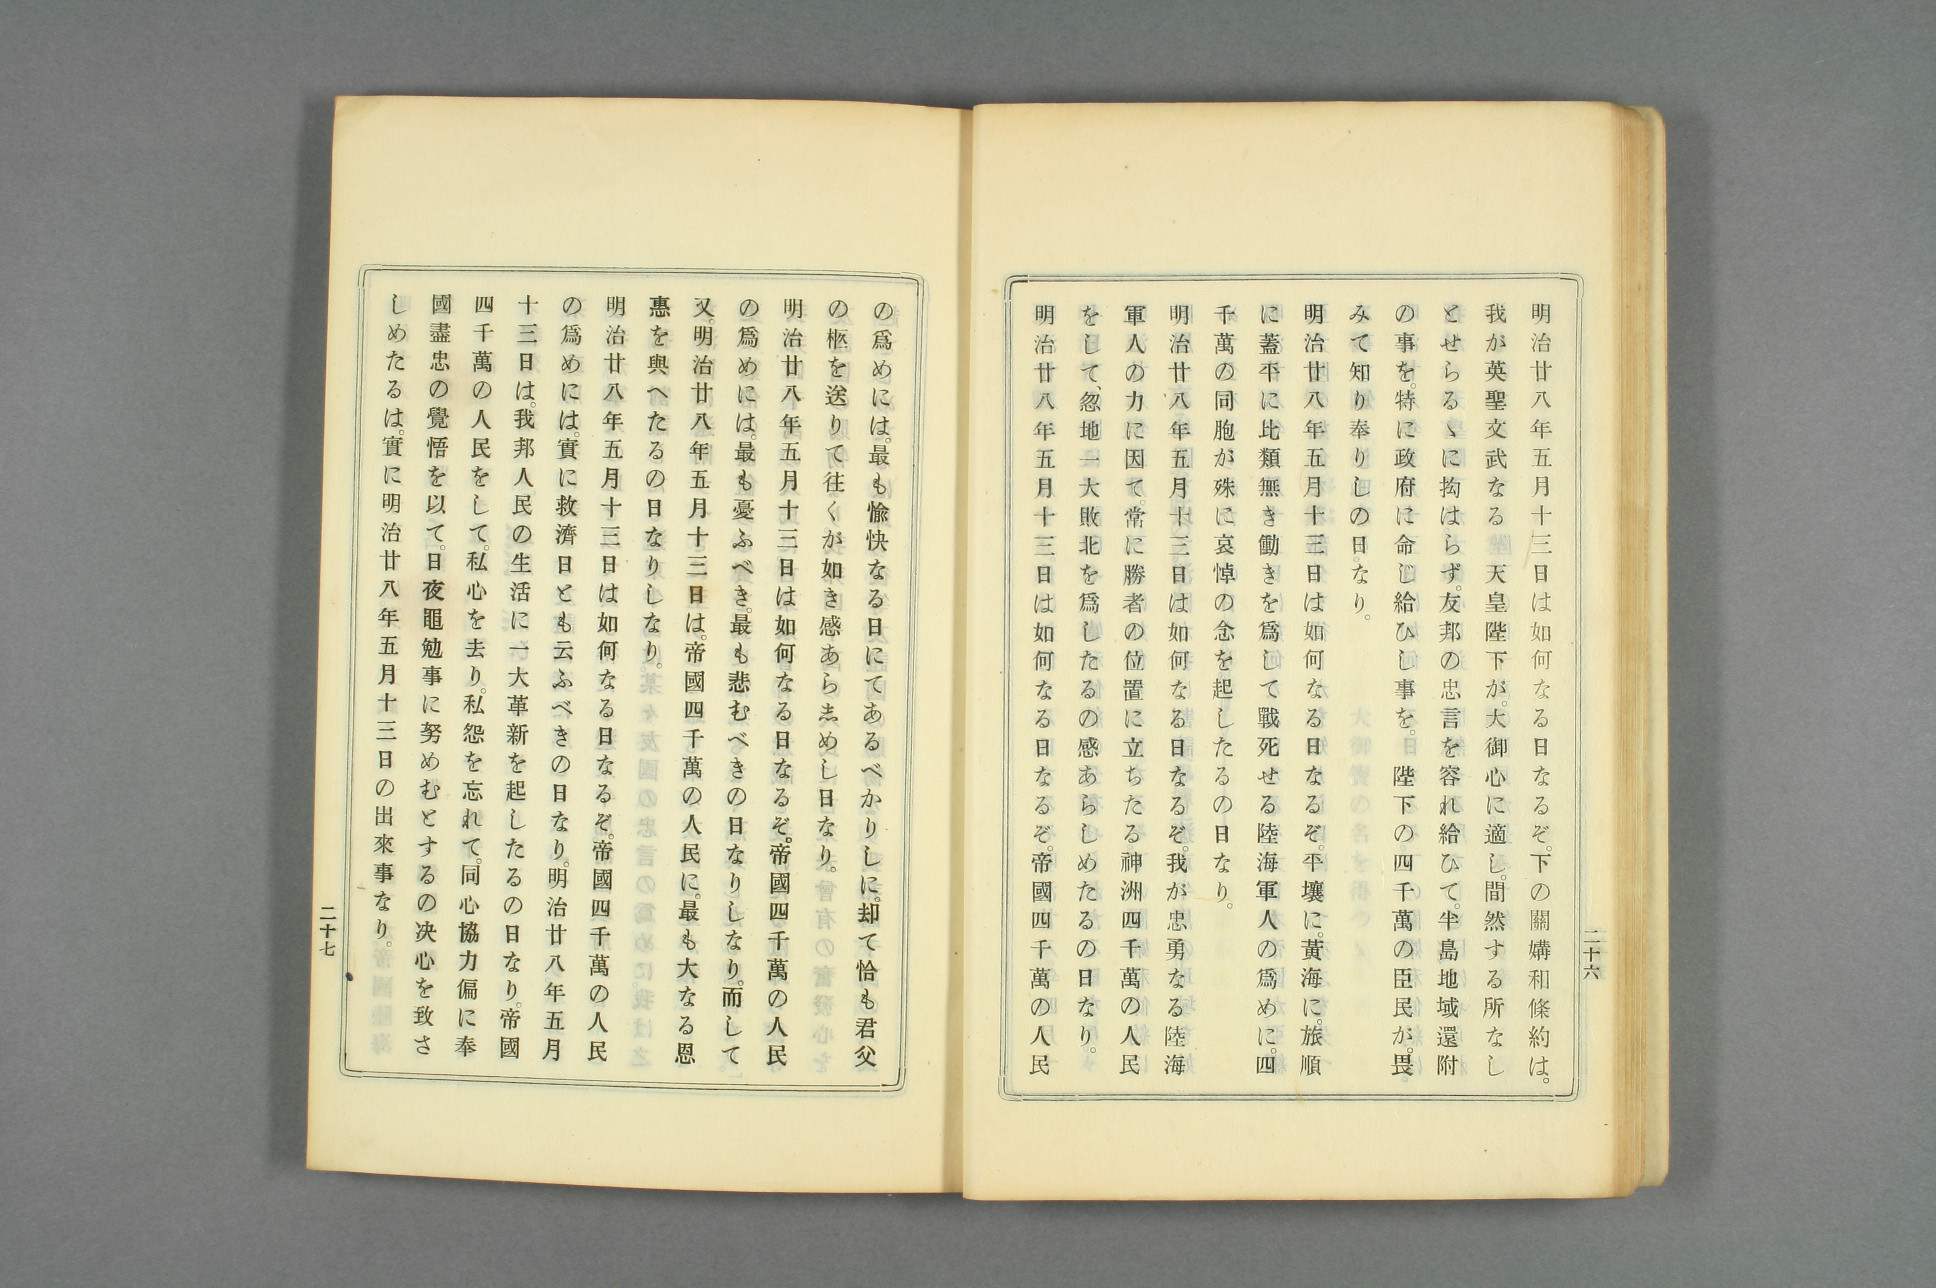 明治廿八年五月十三日は如何なる日なるぞ。下の關媾和條約は。
我が英聖文武なる天皇陛下が。大御心に適し。間然する所なし
とせらるゝに拘はらず。友邦の忠言を容れ給ひて。半島地域還附
の事を。特に政府に命じ給ひし事を。陛下の。四千萬の臣民が。畏
みて知り奉りしの日。なり。
明治廿八年五月十三日は如何なる日なるぞ。平壤に。黃海に。旅順
に蓋平に比類無き働きを爲して戰死せる陸海軍人の爲めに。四
千萬の同胞が殊に哀悼の念を起したるの日なり。
明治廿八年五月十三日は如何なる日なるぞ。我が忠勇なる陸海
軍人の力に因て。常に勝者の位置に立ちたる神洲四千萬の人民
をして、忽地一大敗北を爲したるの感あらしめたるの日なり。
明治廿八年五月十三日は如何なる日なるぞ。帝國四千萬の人民
二十六
の爲めには。最も愉快なる日にてあるべかりしに。却て恰も君父
の柩を送りて往くが如き感あらしめし日なり。
明治廿八年五月十三日は如何なる日なるぞ。帝國四千萬の人民
の爲めには。最も憂ふべき。最も悲むべきの日なりしなり。而して
又。明治廿八年五月十三日は。帝國四千萬の人民に。最も大なる恩
惠を與へたるの日なりしなり。
明治廿八年五月十三日は如何なる日なるぞ。帝國四千萬の人民
の爲めには。實に救濟日とも云ふべきの日なり。明治廿八年五月
十三日は。我邦人民の生活に一大革新を起したるの日なり。帝國
四千萬の人民をして。私心を去り。私怨を忘れて。同心協力偏に奉
國盡忠の覺悟を以て。日夜黽勉事に努めむとするの决心を致さ
しめたるは。實に明治廿八年五月十三日の出來事なり。
二十七